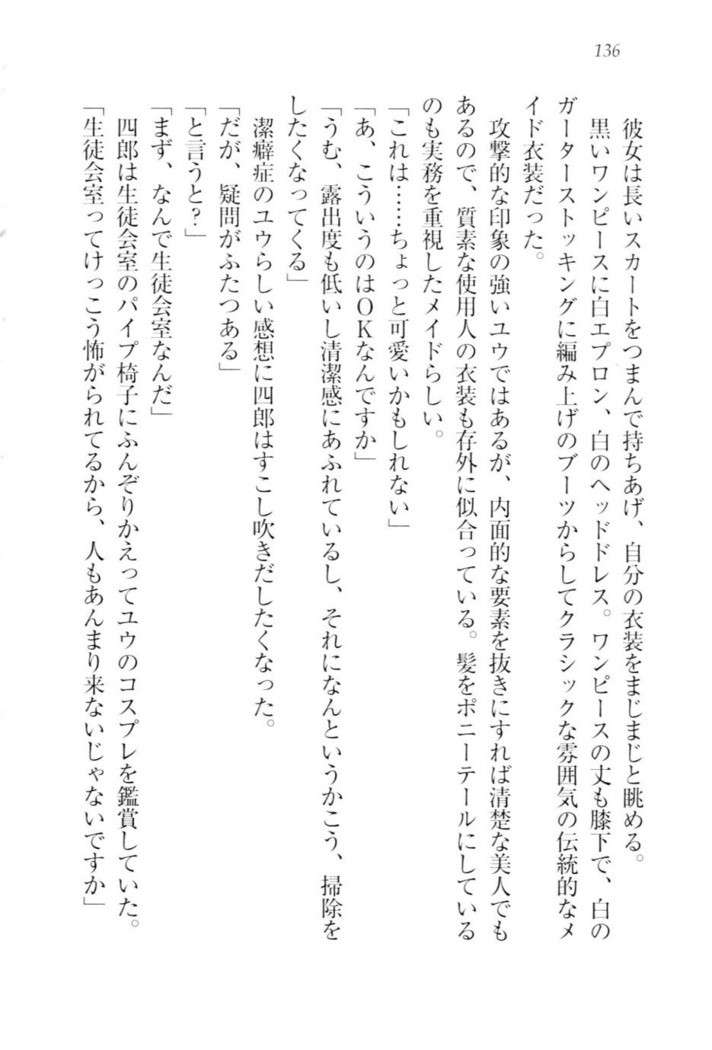 136
彼女は長いスカートをつまんで持ちあげ、自分の衣装をまじまじと眺める。
黒いワンピースに白エプロン、白のヘッドドレス。ワンピースの丈も膝下で、白の
ガーターストッキングに編み上げのブーツからしてクラシックな雰囲気の伝統的なメ
イド衣装だった。
攻撃的な印象の強いユウではあるが、内面的な要素を抜きにすれば清楚な美人でも
あるので、質素な使用人の衣装も存外に似合っている。髪をポニーテールにしている
のも実務を重視したメイドらしい。
「これは……ちょっと可愛いかもしれない」
「あ、こういうのはOKなんですか」
「うむ、露出度も低いし清潔感にあふれているし、それになんというかこう、掃除を
したくなってくる」
潔癖症のユウらしい感想に四郎はすこし吹きだしたくなった。
「だが、疑問がふたつある」
「と言うと?」
「まず、なんで生徒会室なんだ」
四郎は生徒会室のパイプ椅子にふんぞりかえってユウのコスプレを鑑賞していた。
「生徒会室ってけっこう怖がられてるから、人もあんまり来ないじゃないですか」